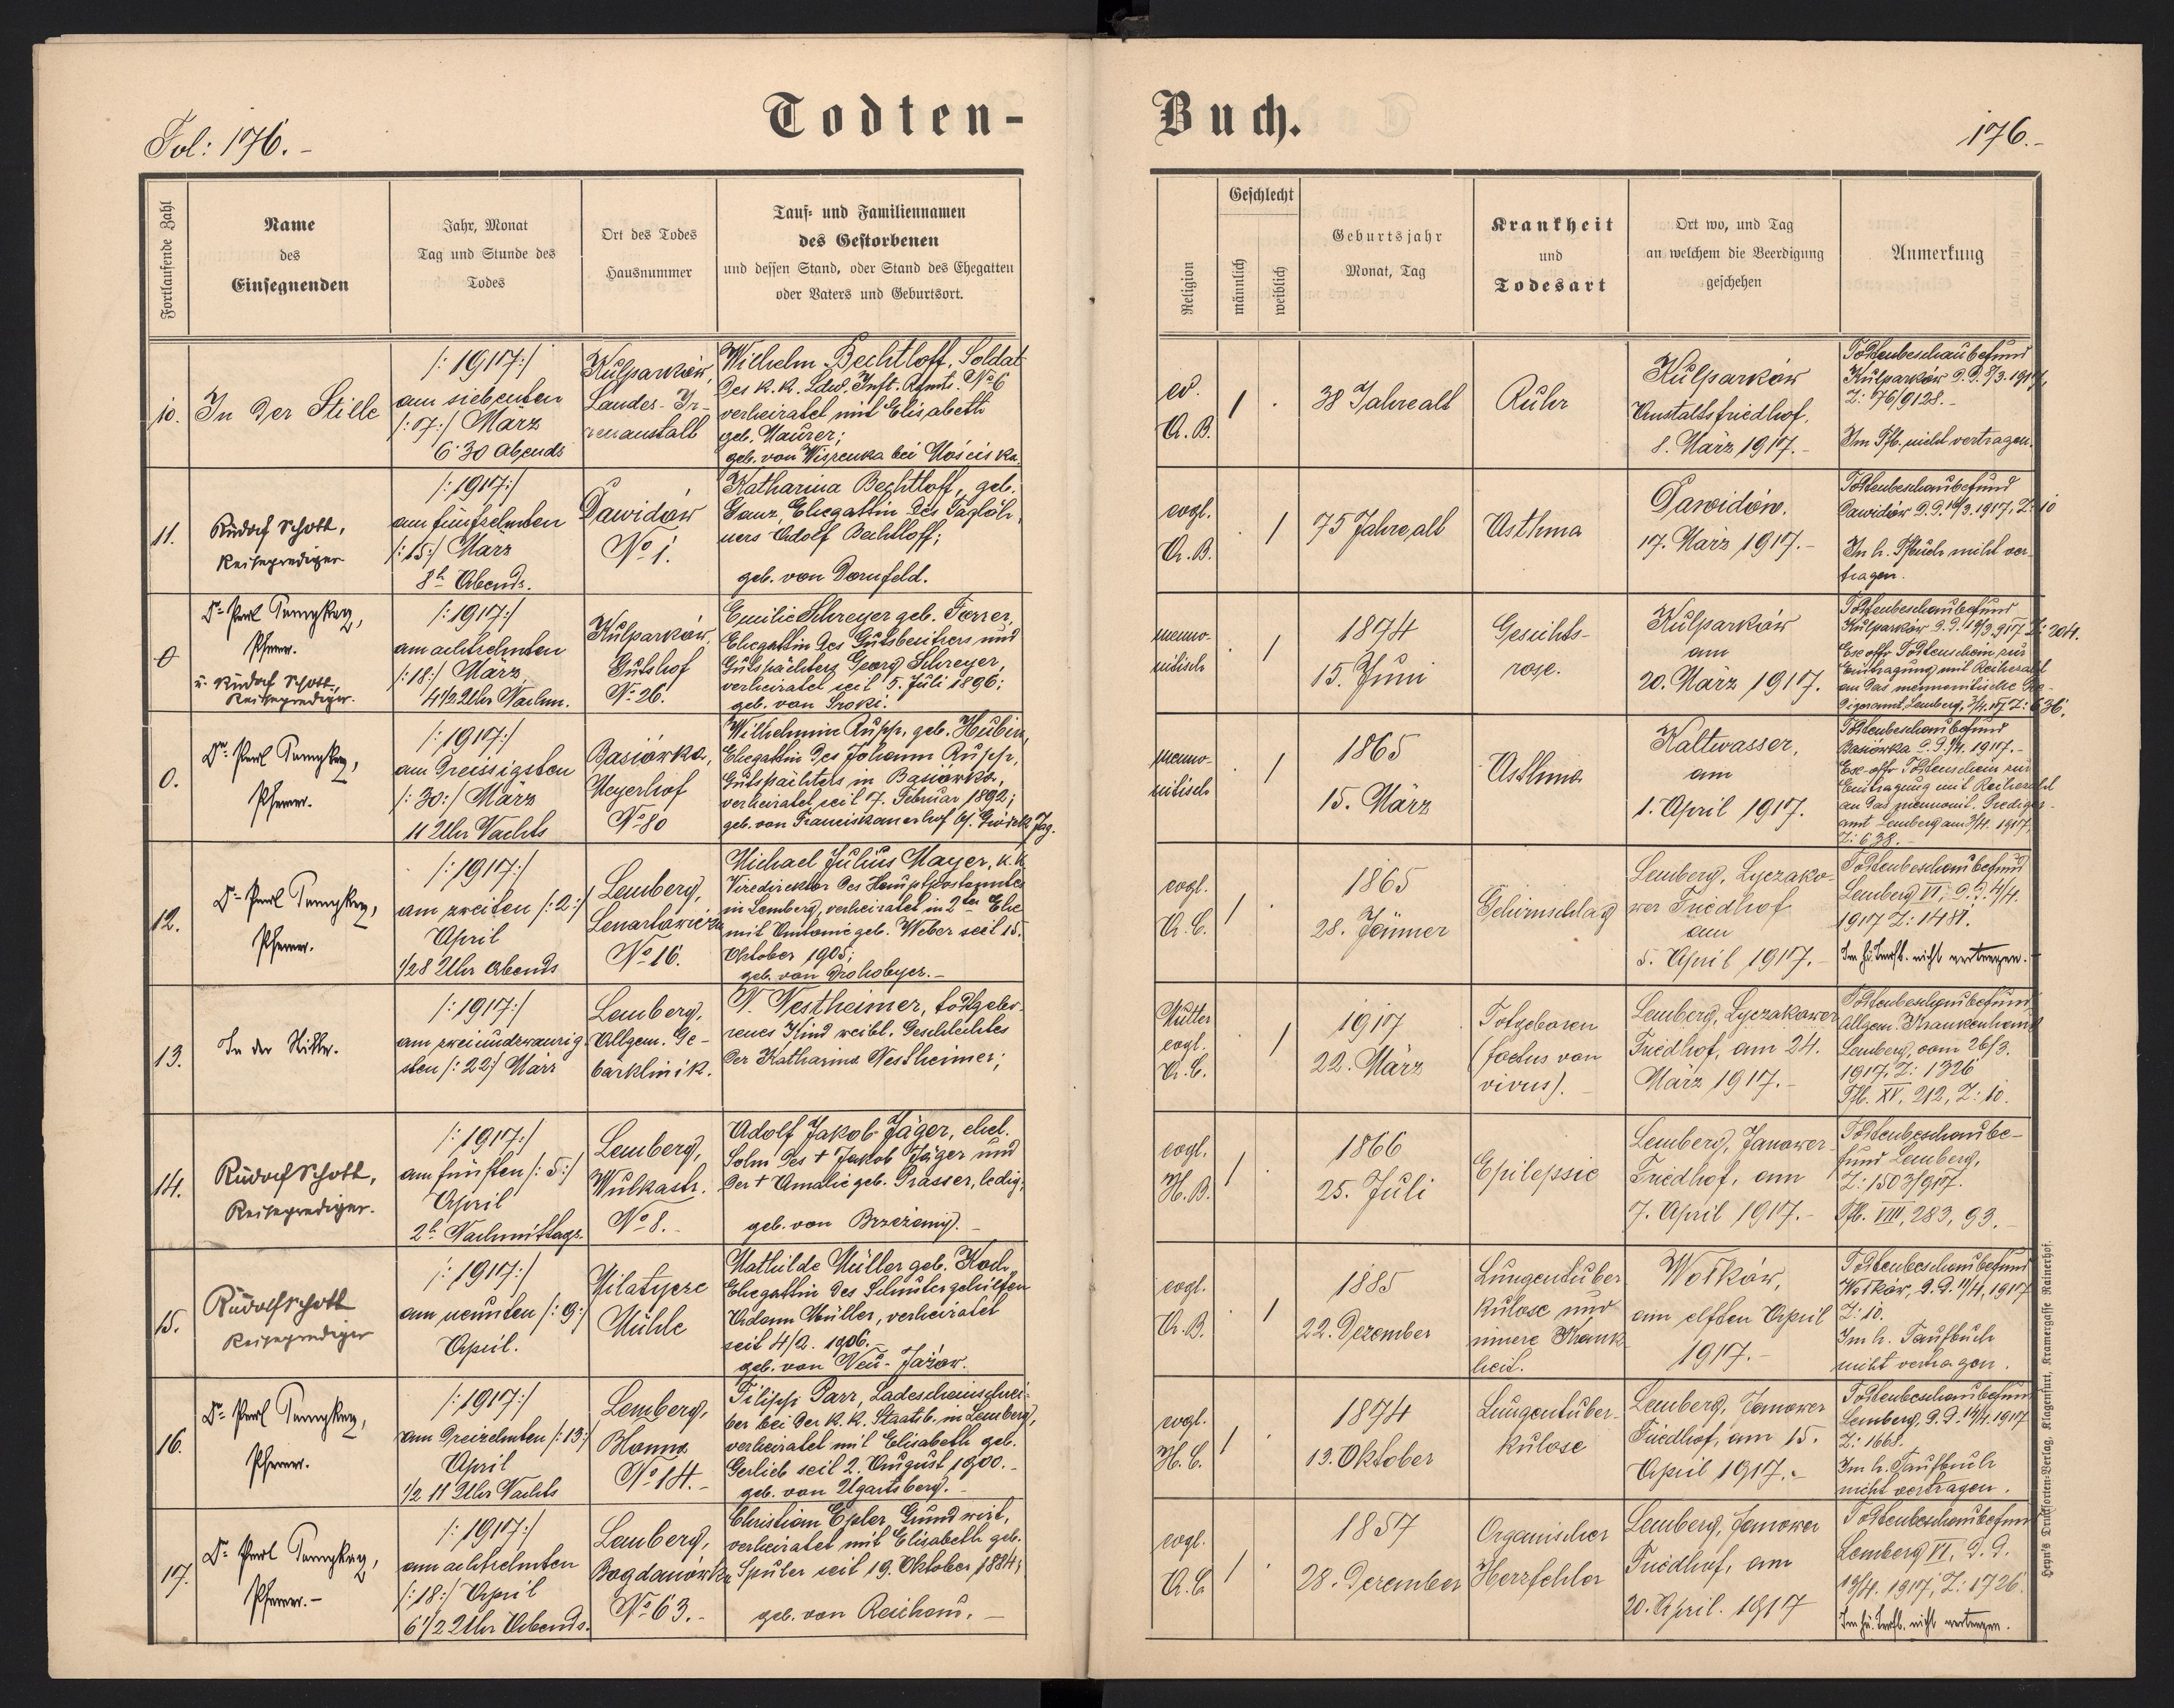 Todten-
Buch.
Fol: 176.-
176.-
Fortlaufende Zahl
Name
des
Einsegnenden
Jahr, Monat
Tag und Stunde des
Todes
Ort des Todes
Hausnummer
Tauf- und Familiennamen
des Gestorbenen
und dessen Stand, oder Stand des Ehegatten
oder Vaters und Geburtsort.
Religion
Geschlecht
männlich
weiblich
Geburtsjahr
Monat, Tag
Krankheit
und
Todesart
Ort wo, und Tag
an welchem die Beerdigung
geschehen
Anmerkung
10.
In der Stille
/: 1917:/
am siebenten
/:7:/ März
6·30 abends
Kulparków,
Landes-Ir-
renanstalt
Wilhelm Bechtloff, Soldat
des k. k. Ldw. Inft. Rgmts. No 6
verheiratet mit Elisabeth
geb. Maurer;
geb. von bei Mościska.
ev.
A. B.
/ .
38 Jahre alt
Ruhr
Kulparków
Anstaltsfriedhof,
8. März 1917.-
Todtenbeschaubefund
Kulparków d. d. 8/3. 1917,
Z: 76/9128.-
Im Tfb. nicht vertragen.
11.
Rudolf Schott,
Reiseprediger
/: 1917:/
am fünfzehnten
/: 15:/ März
8h Abends.
Dawidów
No 1.
Katharina Bechtloff, geb.
Ganz, Ehegattin des Taglöh-
ners Adolf Bechtloff;
geb. von Dornfeld.
evgl.
A. B.
. /
75 Jahre alt
Asthma
Dawidów.
17. März 1917.-
Todtenbeschaubefund
Dawidów d. d. 16/3. 1917, Z: 10
In h. Tfbuch nicht ver-
tragen.
0
Dr Paul
Pfarrer.
u. Rudolf Schott,
Reiseprediger.
/: 1917:/
am achtzehnten
/: 18:/ März
4 1/2 Uhr Nachm.
Kulparków,
Gutshof
No 26.
Emilie Schreyer geb. Forrer,
Ehegattin des Gutsbesitzers und
Gutspächters Georg Schreyer,
verheiratet seit 5. Juli 1896;
geb. von Sroki.
menno-
nitisch
. /
1874
15. Juni
Gesichts-
rose.
Kulparków
am
20. März 1917.
Todtenbeschaubefund
Kulparków d. d. 19/3. 917 Z: 204.
Ex offo Todtenschein zur
Eintragung mit Reihezahl
an das mennonitische Pre-
digeramt, Lemberg, 3/4. 1917 Z: 636.
0.
Dr Paul
Pfarrer.
/: 1917:/
am dreissigsten
/: 30:/ März
11 Uhr Nachts
Basiówka,
Meyerhof
No 80
Wilhelmine Rupp, geb. Hubin,
Ehegattin des Johann Rupp,
Gutspächters in Basiówka,
verheiratet seit 7. Februar 1892;
geb. von Franciskanerhof b/. Gródek Jag.
menno-
nitisch
. /
1865
15. März
Asthma
Kaltwasser,
am
1. April 1917.
Todtenbeschaubefund
Basiówka d. d. 1/4. 1917.-
Ex-offo Todtenschein zur
Eintragung mit Reihezahl
an das mennonit. Prediger-
amt Lemberg am 3/4. 1917,
Z: 638.-
12.
Dr Paul
Pfarrer.
/: 1917:/
am zweiten /: 2:/
April
1/2 8 Uhr abends
Lemberg,
Lenartowicza
No 16.
Michael Julius Mayer, k. k.
Vizedirektor des Hauptpostamtes
in Lemberg, verheiratet in 2ter Ehe
mit Antonie geb. Weber seit 15.
Oktober 1905;
geb. von Drohobycz.-
evgl.
A. C.
/ .
1865
28. Jänner
Gehirnschlag
Lemberg, Lyczako-
wer Friedhof
am
5. April 1917.-
Todtenbeschaubefund
Lemberg VI, d. d. 4/4.
1917 Z: 1481.
Im hg. Taufb. nicht vertragen.-
13.
In der Stille.
/: 1917:/
am zweiundzwanzig-
sten /: 22:/ März
Lemberg,
Allgem. Ge-
bärklinik.
N. Westheimer, todtgebo-
renes Kind weibl. Geschlechtes
der Katharina Westheimer;
Mutter
evgl.
A. C.
. /
1917
22. März
Totgeboren
(foetus von
vivus).-
Lemberg, Lyczakower
Friedhof, am 24.
März 1917.-
Todtenbeschaubefund
Allgem. Krankenhaus
Lemberg, vom 26/3.
1917, Z: 1326
Tfb. XV, 212, Z: 10.
14.
Rudolf Schott,
Reiseprediger.
/: 1917:/
am fünften /: 5:/
April
2h Nachmittags.
Lemberg,
Wulkastr.
No 8.-
Adolf Jakob Jäger, ehel.
Sohn des + Jakob Jäger und
der + Amalie geb. Prasser, ledig;
geb. von Brzeżany.-
evgl.
H. B.
/ .
1866
25. Juli
Epilepsie
Lemberg, Janower
Friedhof, am
7. April 1917.-
Todtenbeschaube-
fund Lemberg,
Z: 1503/917.
Tfb. VIII, 283, 93.-
15.
Rudolf Schott
Reiseprediger
/: 1917:/
am neunten /: 9:/
April.
Milatycze
Mühle
Mathilde Müller geb. Koch,
Ehegattin des Schustergehilfen
Adam Müller, verheiratet
seit 4/2. 1906.-
geb. von Neu-Jażow.
evgl.
A. B.
. /
1885
22. Dezember
Lungentuber-
kulose und
innere Krank-
heit.
Wołków,
am elften April
1917.-
Todtenbeschaubefund
Wołków, d. d. 11/4, 1917
Z: 10.
Im h. Taufbuch
nicht vertragen.
16.
Dr Paul
Pfarrer.
/: 1917:/
am dreizehnten /: 13:/
April
1/2 11 Uhr Nachts
Lemberg,
Błonna
No 14.-
Filipp Parr, Ladescheinschrei-
ber bei der k. k. Staatsb. in Lemberg,
verheiratet mit Elisabeth geb.
Gerlieb seit 2. August 1900.-
geb. von Ugartsberg.-
evgl.
H. C.
/ .
1874
13. Oktober
Lungentuber-
kulose
Lemberg, Janower
Friedhof, am 15.
April 1917.-
Todtenbeschaubefund
Lemberg, d. d. 14/4. 1917
Z: 1668.
Im h. Taufbuch
nicht vertragen.
17.
Dr Paul
Pfarrer.-
/: 1917:/
am achtzehnten
/: 18:/ April
6 1/2 Uhr Abends.
Lemberg,
Bogdanówka
No 63.-
Christian Epler, Grundwirt,
verheiratet mit Elisabeth geb.
Spuler seit 19. Oktober 1884;
geb. von Reichau.-
evgl.
A. C
/ .
1857
28. Dezember
Organischer
Herzfehler
Lemberg, Janower
Friedhof, am
20. April. 1917
Todtenbeschaubefund
Lemberg VI, d. d.
19/4. 1917, Z: 1726.
Im hg. Taufb. nicht vertragen.
Heyn's Drucksorten-Verlag, Klagenfurt, Kramergasse Rainerhof.